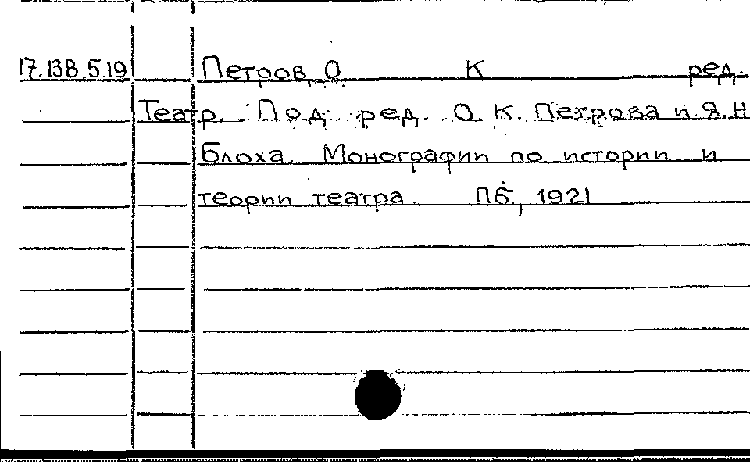 17.138.5.19 Петров, О. К. ред.
Театр. Под ред. О. К. Петрова и Я. Н.
Блоха. Монографии по истории и
теории театра. Пб., 1921